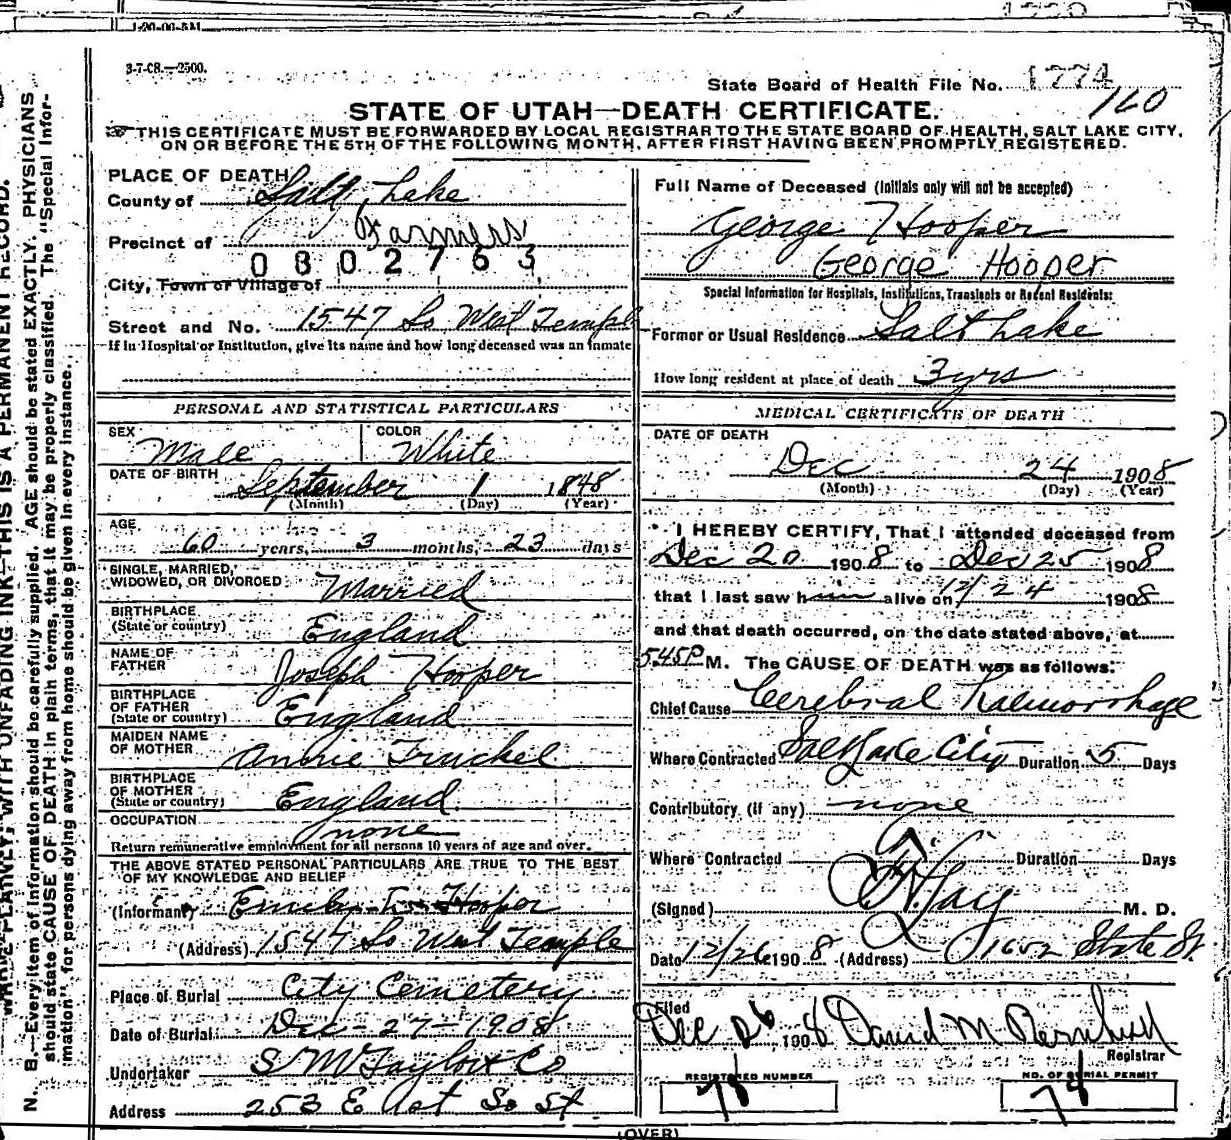 1-20-06-5M
3-7-08.—2500.
State Board of Health File No. 1774
160
STATE OF UTAH—DEATH CERTIFICATE.
THIS CERTIFICATE MUST BE FORWARDED BY LOCAL REGISTRAR TO THE STATE BOARD OF HEALTH, SALT LAKE CITY,
ON OR BEFORE THE 5TH OF THE FOLLOWING MONTH, AFTER FIRST HAVING BEEN PROMPTLY REGISTERED.
PLACE OF DEATH
County of Salt Lake
Precinct of Farmers
0802763
City, Town or Village of
Street and No. 1547 So West Temple
If in Hospital or Institution, give its name and how long deceased was an inmate
Full Name of Deceased (Initials only will not be accepted)
George Hooper
George Hooper
Special Information for Hospitals, Institutions, Transients or Recent Residents:
Former or Usual Residence Salt Lake
How long resident at place of death 3 yrs
PERSONAL AND STATISTICAL PARTICULARS
SEX Male COLOR White
DATE OF BIRTH September 1 1848
(Month) (Day) (Year)
AGE 60 years, 3 months, 23 days
SINGLE, MARRIED,
WIDOWED, OR DIVORCED Married
BIRTHPLACE
(State or country) England
NAME OF
FATHER Joseph Hooper
BIRTHPLACE
OF FATHER
(State or country) England
MAIDEN NAME
OF MOTHER Annie
BIRTHPLACE
OF MOTHER
(State or country) England
OCCUPATION none
Return remunerative employment for all persons 10 years of age and over.
THE ABOVE STATED PERSONAL PARTICULARS ARE TRUE TO THE BEST
OF MY KNOWLEDGE AND BELIEF
(Informant) Hooper
(Address) 1547 So West Temple
Place of Burial City Cemetery
Date of Burial Dec-27-1908
Undertaker S M Taylor & Co
Address 253 E 1st So St
MEDICAL CERTIFICATE OF DEATH
DATE OF DEATH
Dec 24 1908
(Month) (Day) (Year)
I HEREBY CERTIFY, That I attended deceased from
Dec 20 1908 to Dec 25 1908
that I last saw him alive on 12/24 1908
and that death occurred, on the date stated above, at
5.45P M. The CAUSE OF DEATH was as follows:
Chief Cause Cerebral Haemorrhage
Where Contracted Salt Lake City Duration 5 Days
Contributory (if any) none
Where Contracted Duration Days
(Signed) M. D.
Date 12/26 1908 (Address) 1652 State St.
Filed
Dec 26 1908 David M
Registrar
REGISTERED NUMBER NO. OF BURIAL PERMIT
78 78
(OVER)
N. B.—Every item of information should be carefully supplied. AGE should be stated EXACTLY. PHYSICIANS
should state CAUSE OF DEATH in plain terms, that it may be properly classified. The "Special Infor-
mation" for persons dying away from home should be given in every instance.
WRITE PLAINLY, WITH UNFADING INK—THIS IS A PERMANENT RECORD.